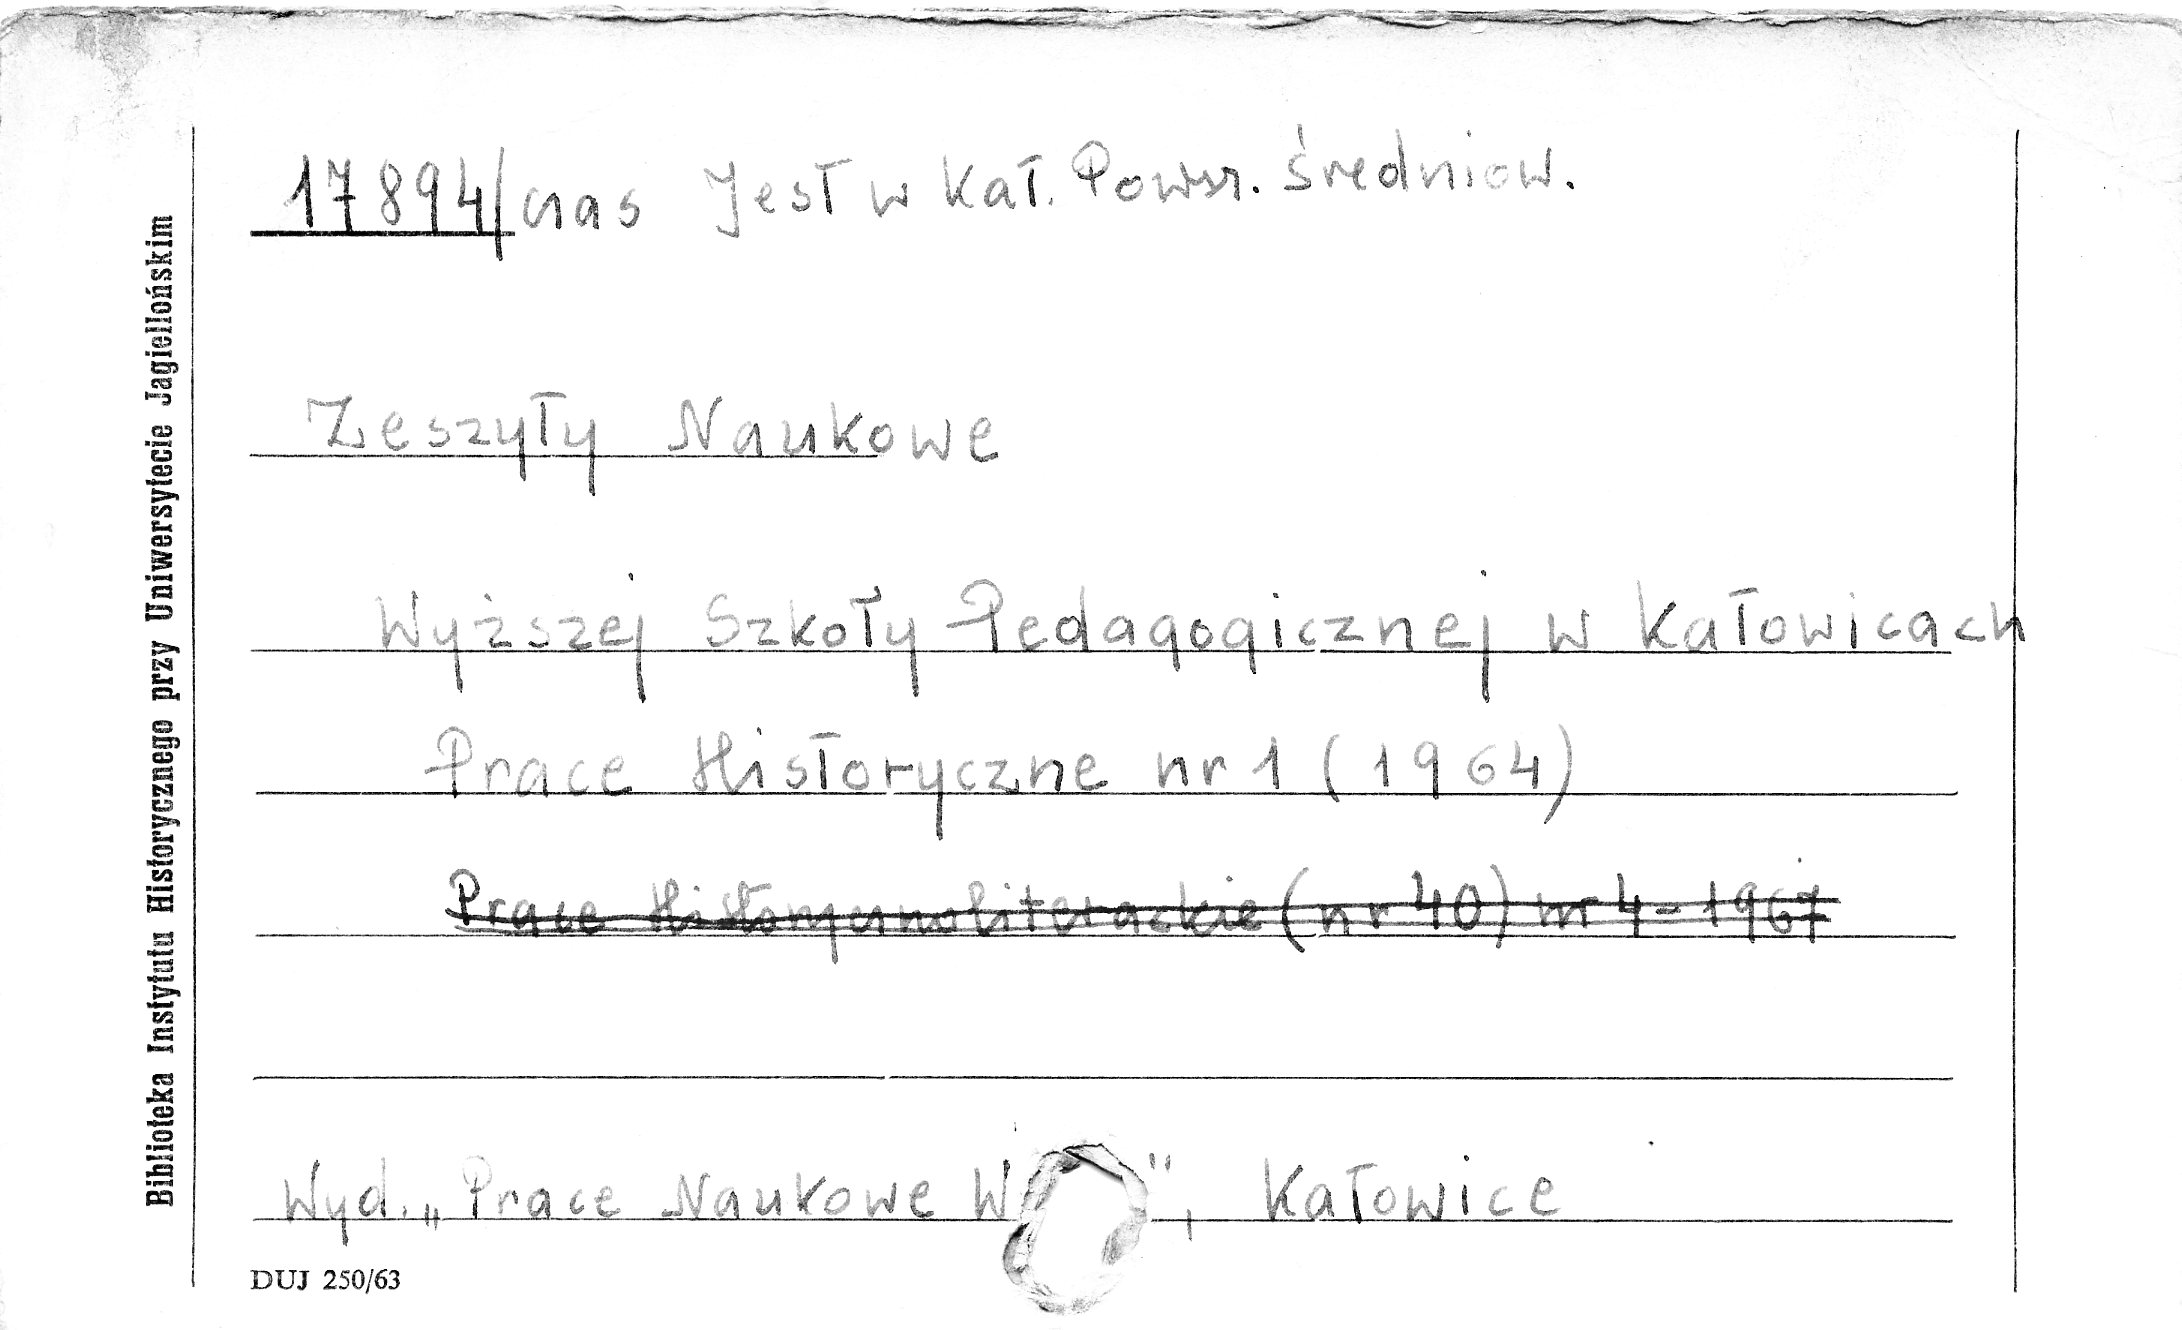 17894/czas Jest w kat. Powsz. średniow.
Zeszyty Naukowe
Wyższej Szkoły Pedagogicznej w Katowicach
Prace Historyczne nr 1 (1964)
Prace Historycznoliterackie (nr 40) nr 4-1967
Wyd. „Prace Naukowe W ", Katowice
DUJ 250/63
Biblioteka Instytutu Historycznego przy Uniwersytecie Jagiellońskim